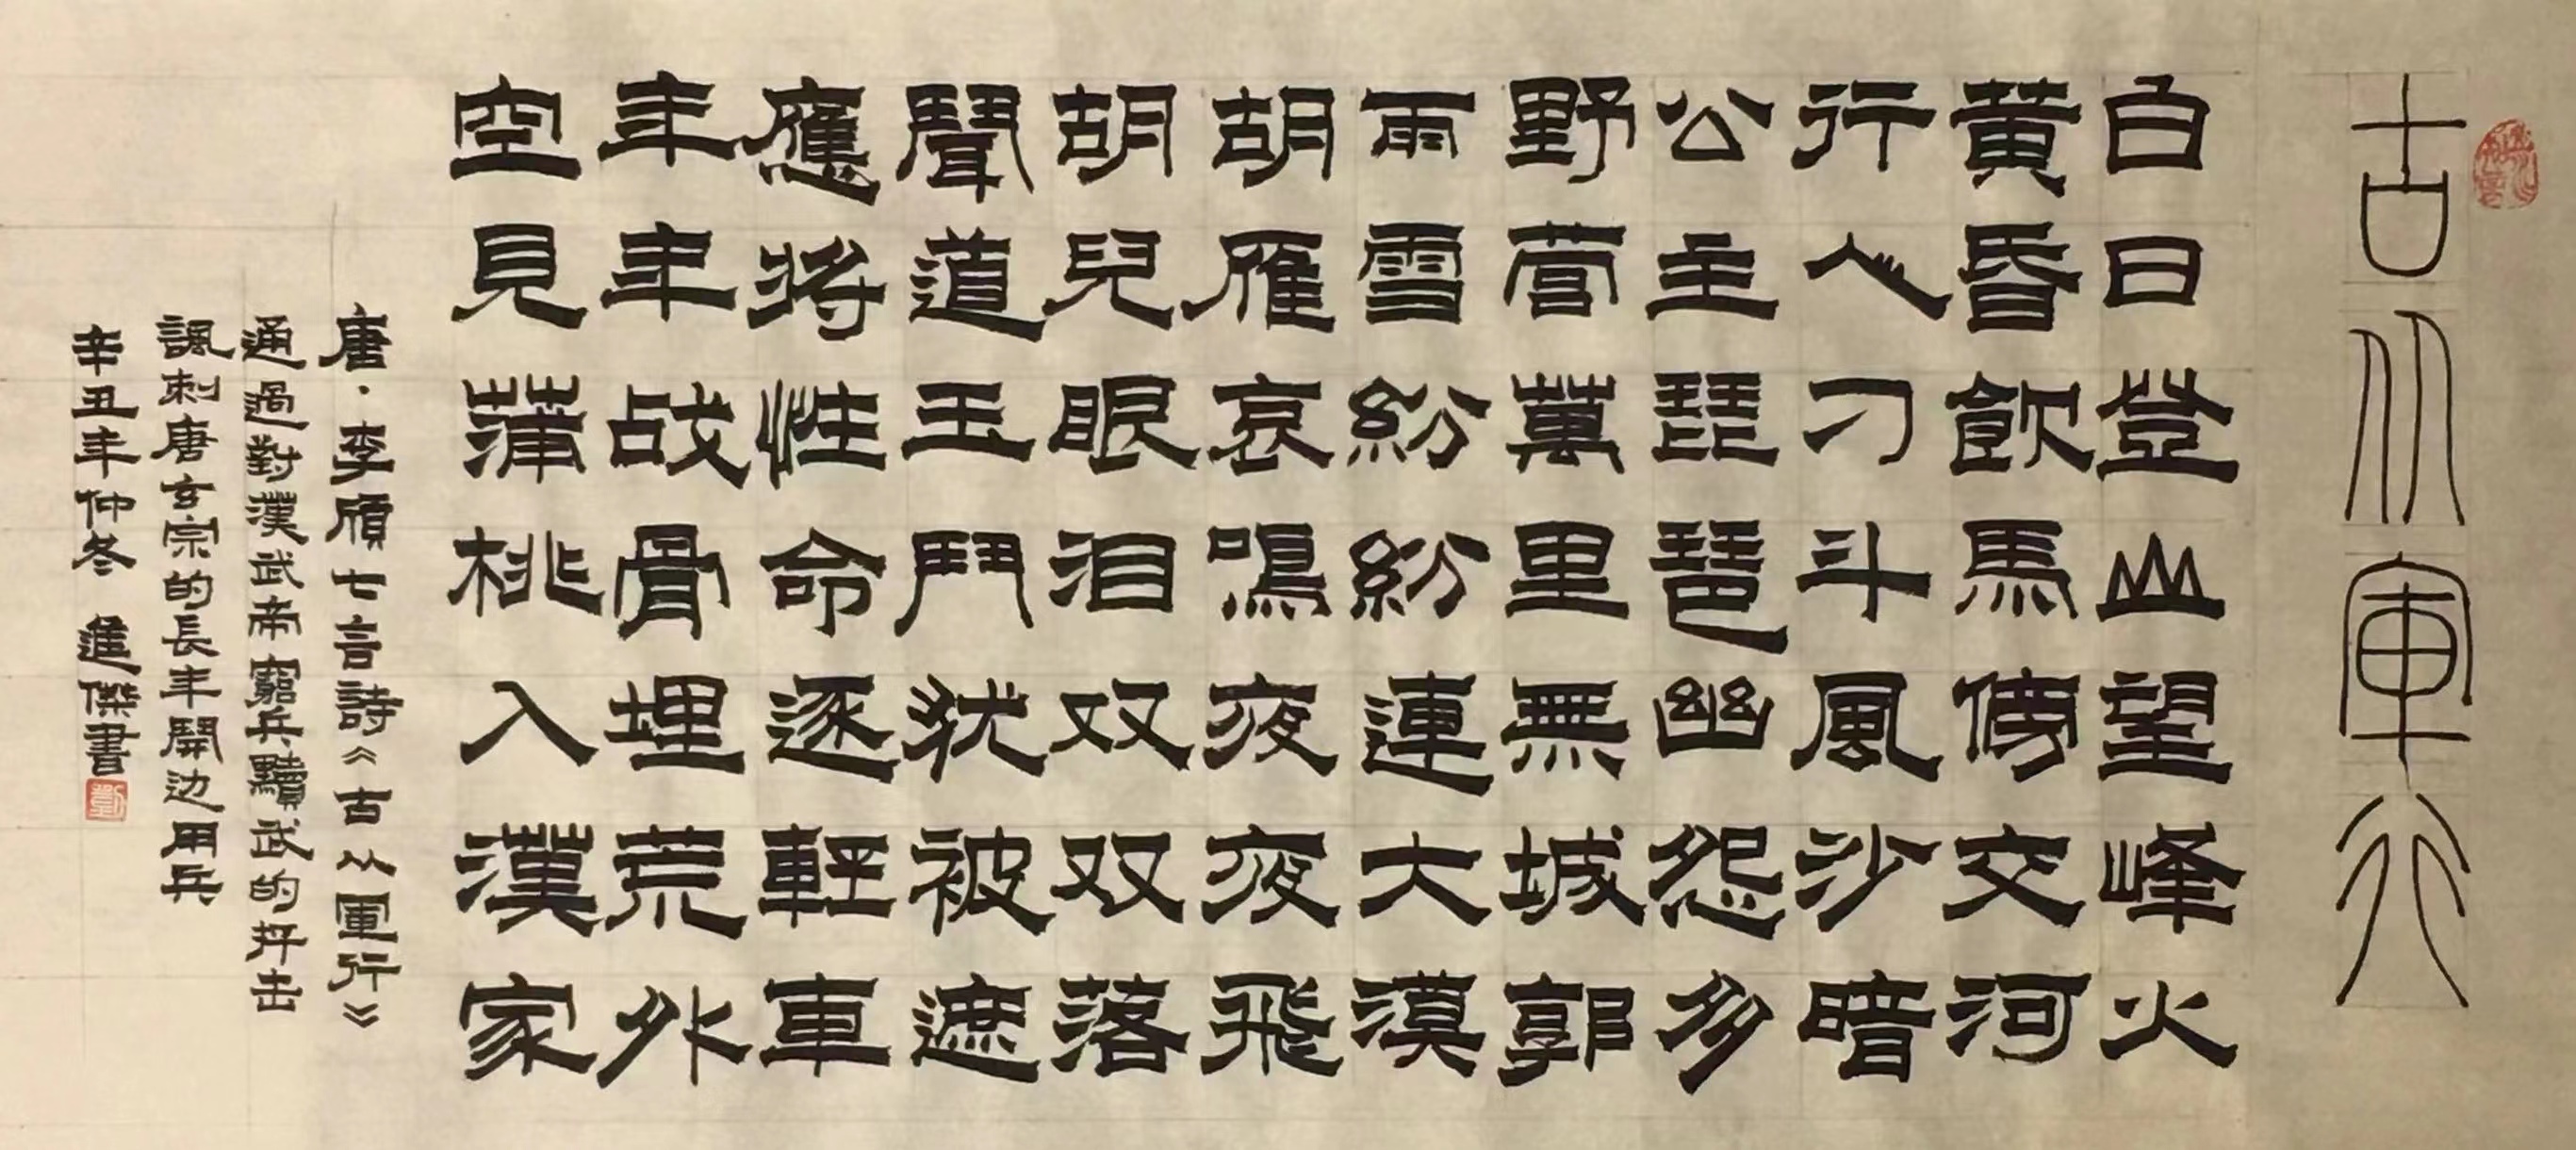 古从軍行
白日登山望峰火
黄昏飲馬傍交河
行人刁斗風沙暗
公主琵琶幽怨多
野营萬里無城郭
雨雪紛紛連大漠
胡雁哀鳴夜夜飛
胡兒眼泪双双落
聞道玉門犹被遮
應将性命逐輕車
年年战骨埋荒外
空見蒲桃入漢家
唐·李頎七言詩《古从軍行》
通過對漢武帝窮兵黷武的抨击
諷刺唐玄宗的長年開边用兵
辛丑年仲冬 進傑書